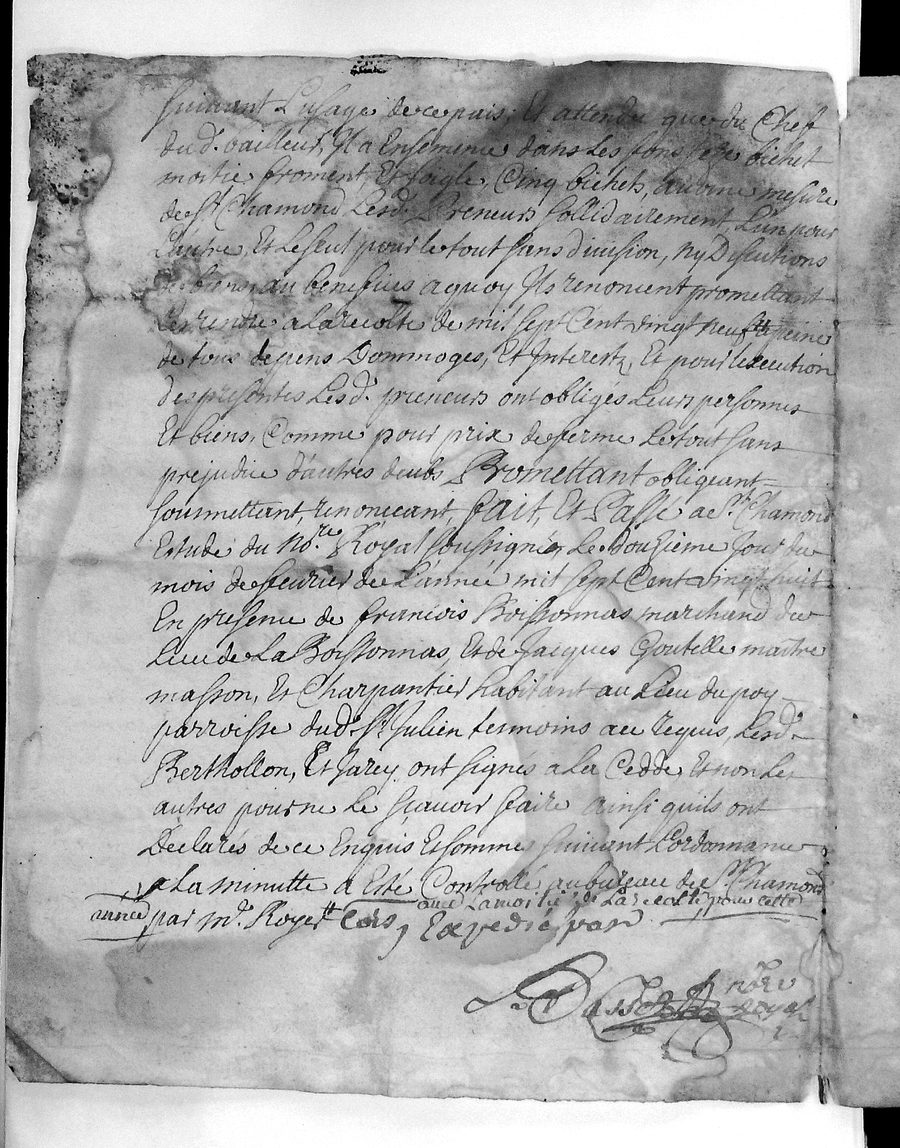 suivant L'usage de ce païs, Et attendu que du Chef
dud. bailleur, Il a Ensemencé dans Les fons seze bichet
moitie froment, Et soigle, Cinq bichets, avoine mesure
de St. Chamond Lesd. Preneurs sollidairement, L'un pour
L'autre, Et Le seul pour le tout sans division, ny Discutions
de biens, au benefices a quoy Ils renoncent promettant
Les rendre a La recolte de mil sept Cent vingt neuf a peine
de tous depens Dommoges, Et Interestz, Et pour L'execution
des presentes Lesd. preneurs ont obligés Leurs personnes
Et biens, Comme pour prix de ferme Le tout sans
prejudice d'autres deubs Promettant obligeant
soumettant, renonceant, fait, Et Passé a St. Chamond
Estude du No.re Royal soussigné Le Douzième Jour du
mois de feuvrier de L'année mil sept Cent vingt huit
En presence de francois Boissonnas marchand du
Lieu de La Boissonnas, Et de Jacques Goutelle maitre
masson, Et Charpantier habitant au Lieu du poy
parroisse dud. St. Julien temoins a ce requis, Lesd.
Berthollon, Et Jarey ont signés a La Cedde Et non Les
autres pour ne Le scavoir faire ainsi quils ont
Declarés de ce Enquis Et sommé suivant L'ordonnance
La minutte a Esté Controllé au bureau de St. Chamond
avec La moitié de La recolte pour cette
année
par m. Royet Expedié par
no.re
royal